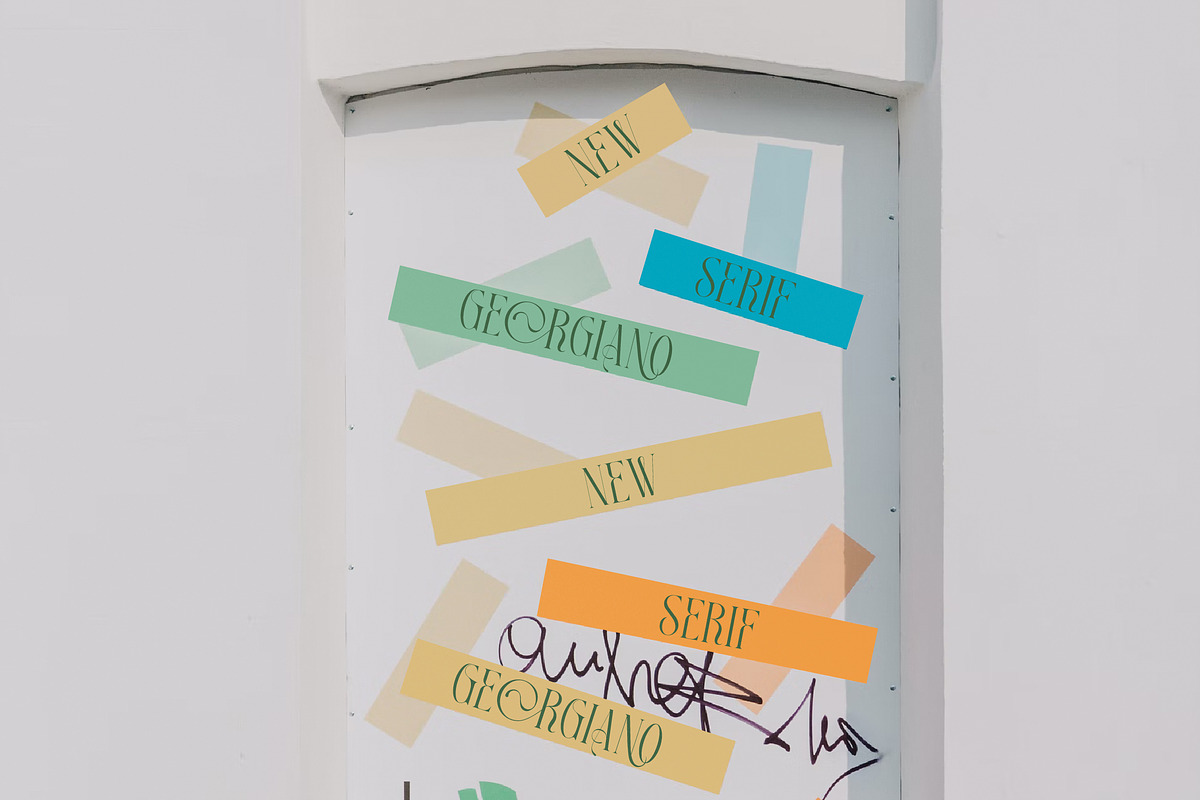 NEW
SERIF
GEORGIANO
NEW
SERIF
GEORGIANO